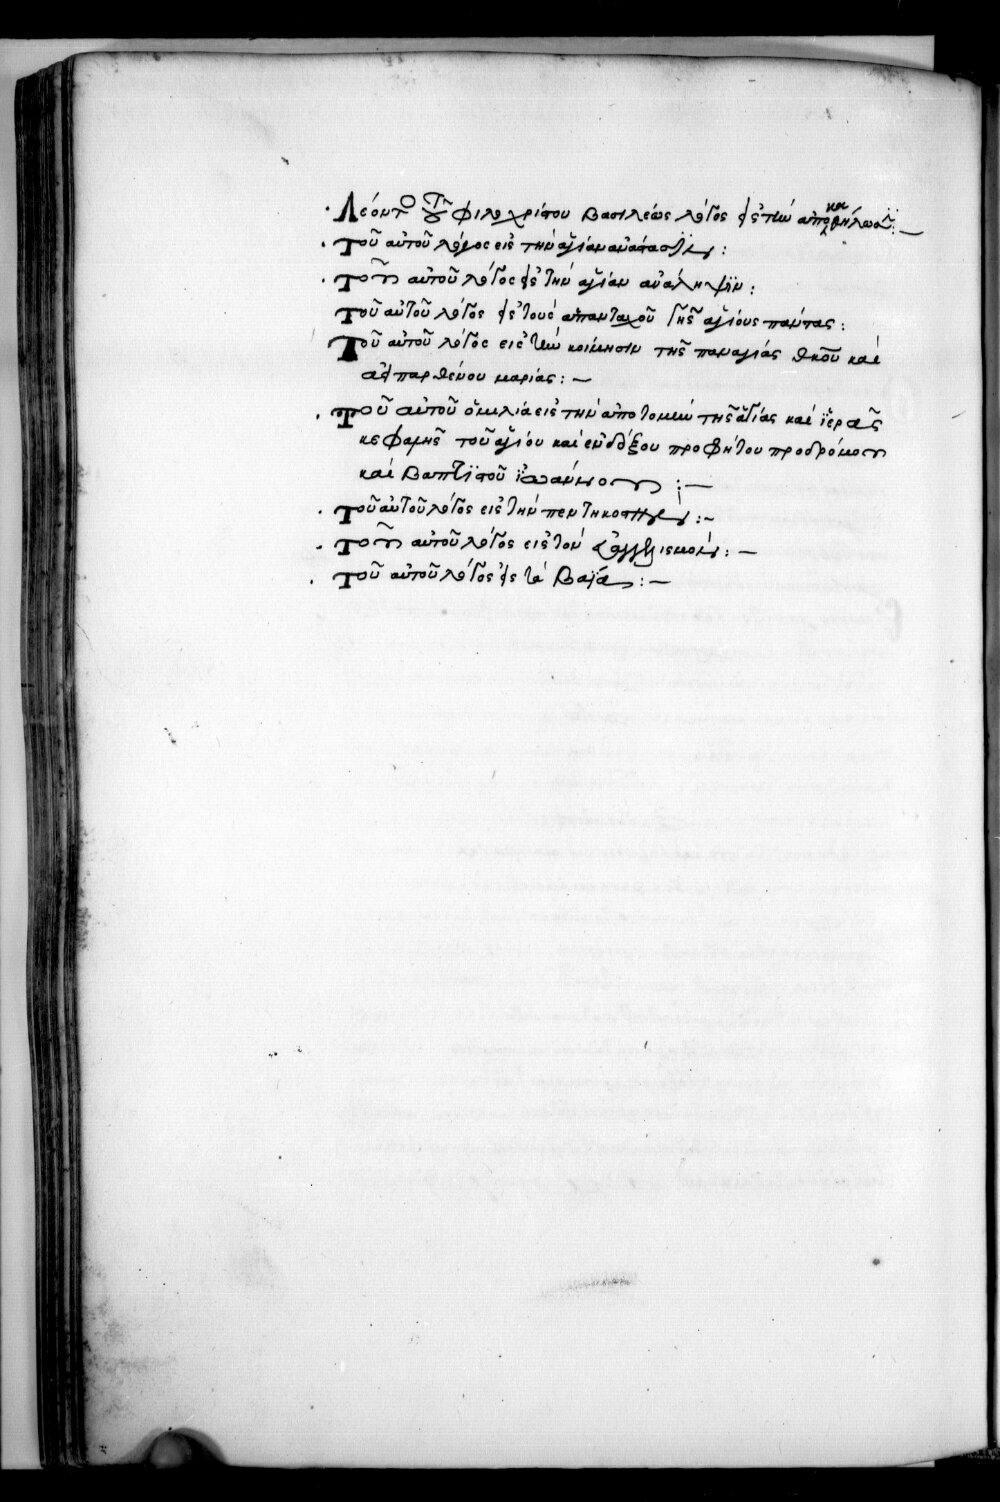 Λέοντος τοῦ φιλοχρίστου βασιλέως λόγος εἰς τὴν ἀποκαθήλωσιν :—
Τοῦ αὐτοῦ λόγος εἰς τὴν ἁγίαν ἀνάστασιν :
Τοῦ αὐτοῦ λόγος εἰς τὴν ἁγίαν ἀνάληψιν :
Τοῦ αὐτοῦ λόγος εἰς τοὺς ἁπανταχοῦ γῆς ἁγίους πάντας :
Τοῦ αὐτοῦ λόγος εἰς τὴν κοίμησιν τῆς παναγίας θκου καὶ
ἀειπαρθένου μαρίας : —
Τοῦ αὐτοῦ ὁμιλία εἰς τὴν ἀποτομὴν τῆς ἁγίας καὶ ἱερᾶς
κεφαλῆς τοῦ ἁγίου καὶ ἐνδόξου προφήτου προδρόμου
καὶ βαπτιστοῦ ἰωάννου : —
Τοῦ αὐτοῦ λόγος εἰς τὴν πεντηκοστήν :~
Τοῦ αὐτοῦ λόγος εἰς τὸν εὐαγγελισμόν : —
Τοῦ αὐτοῦ λόγος εἰς τὰ βαΐα :—